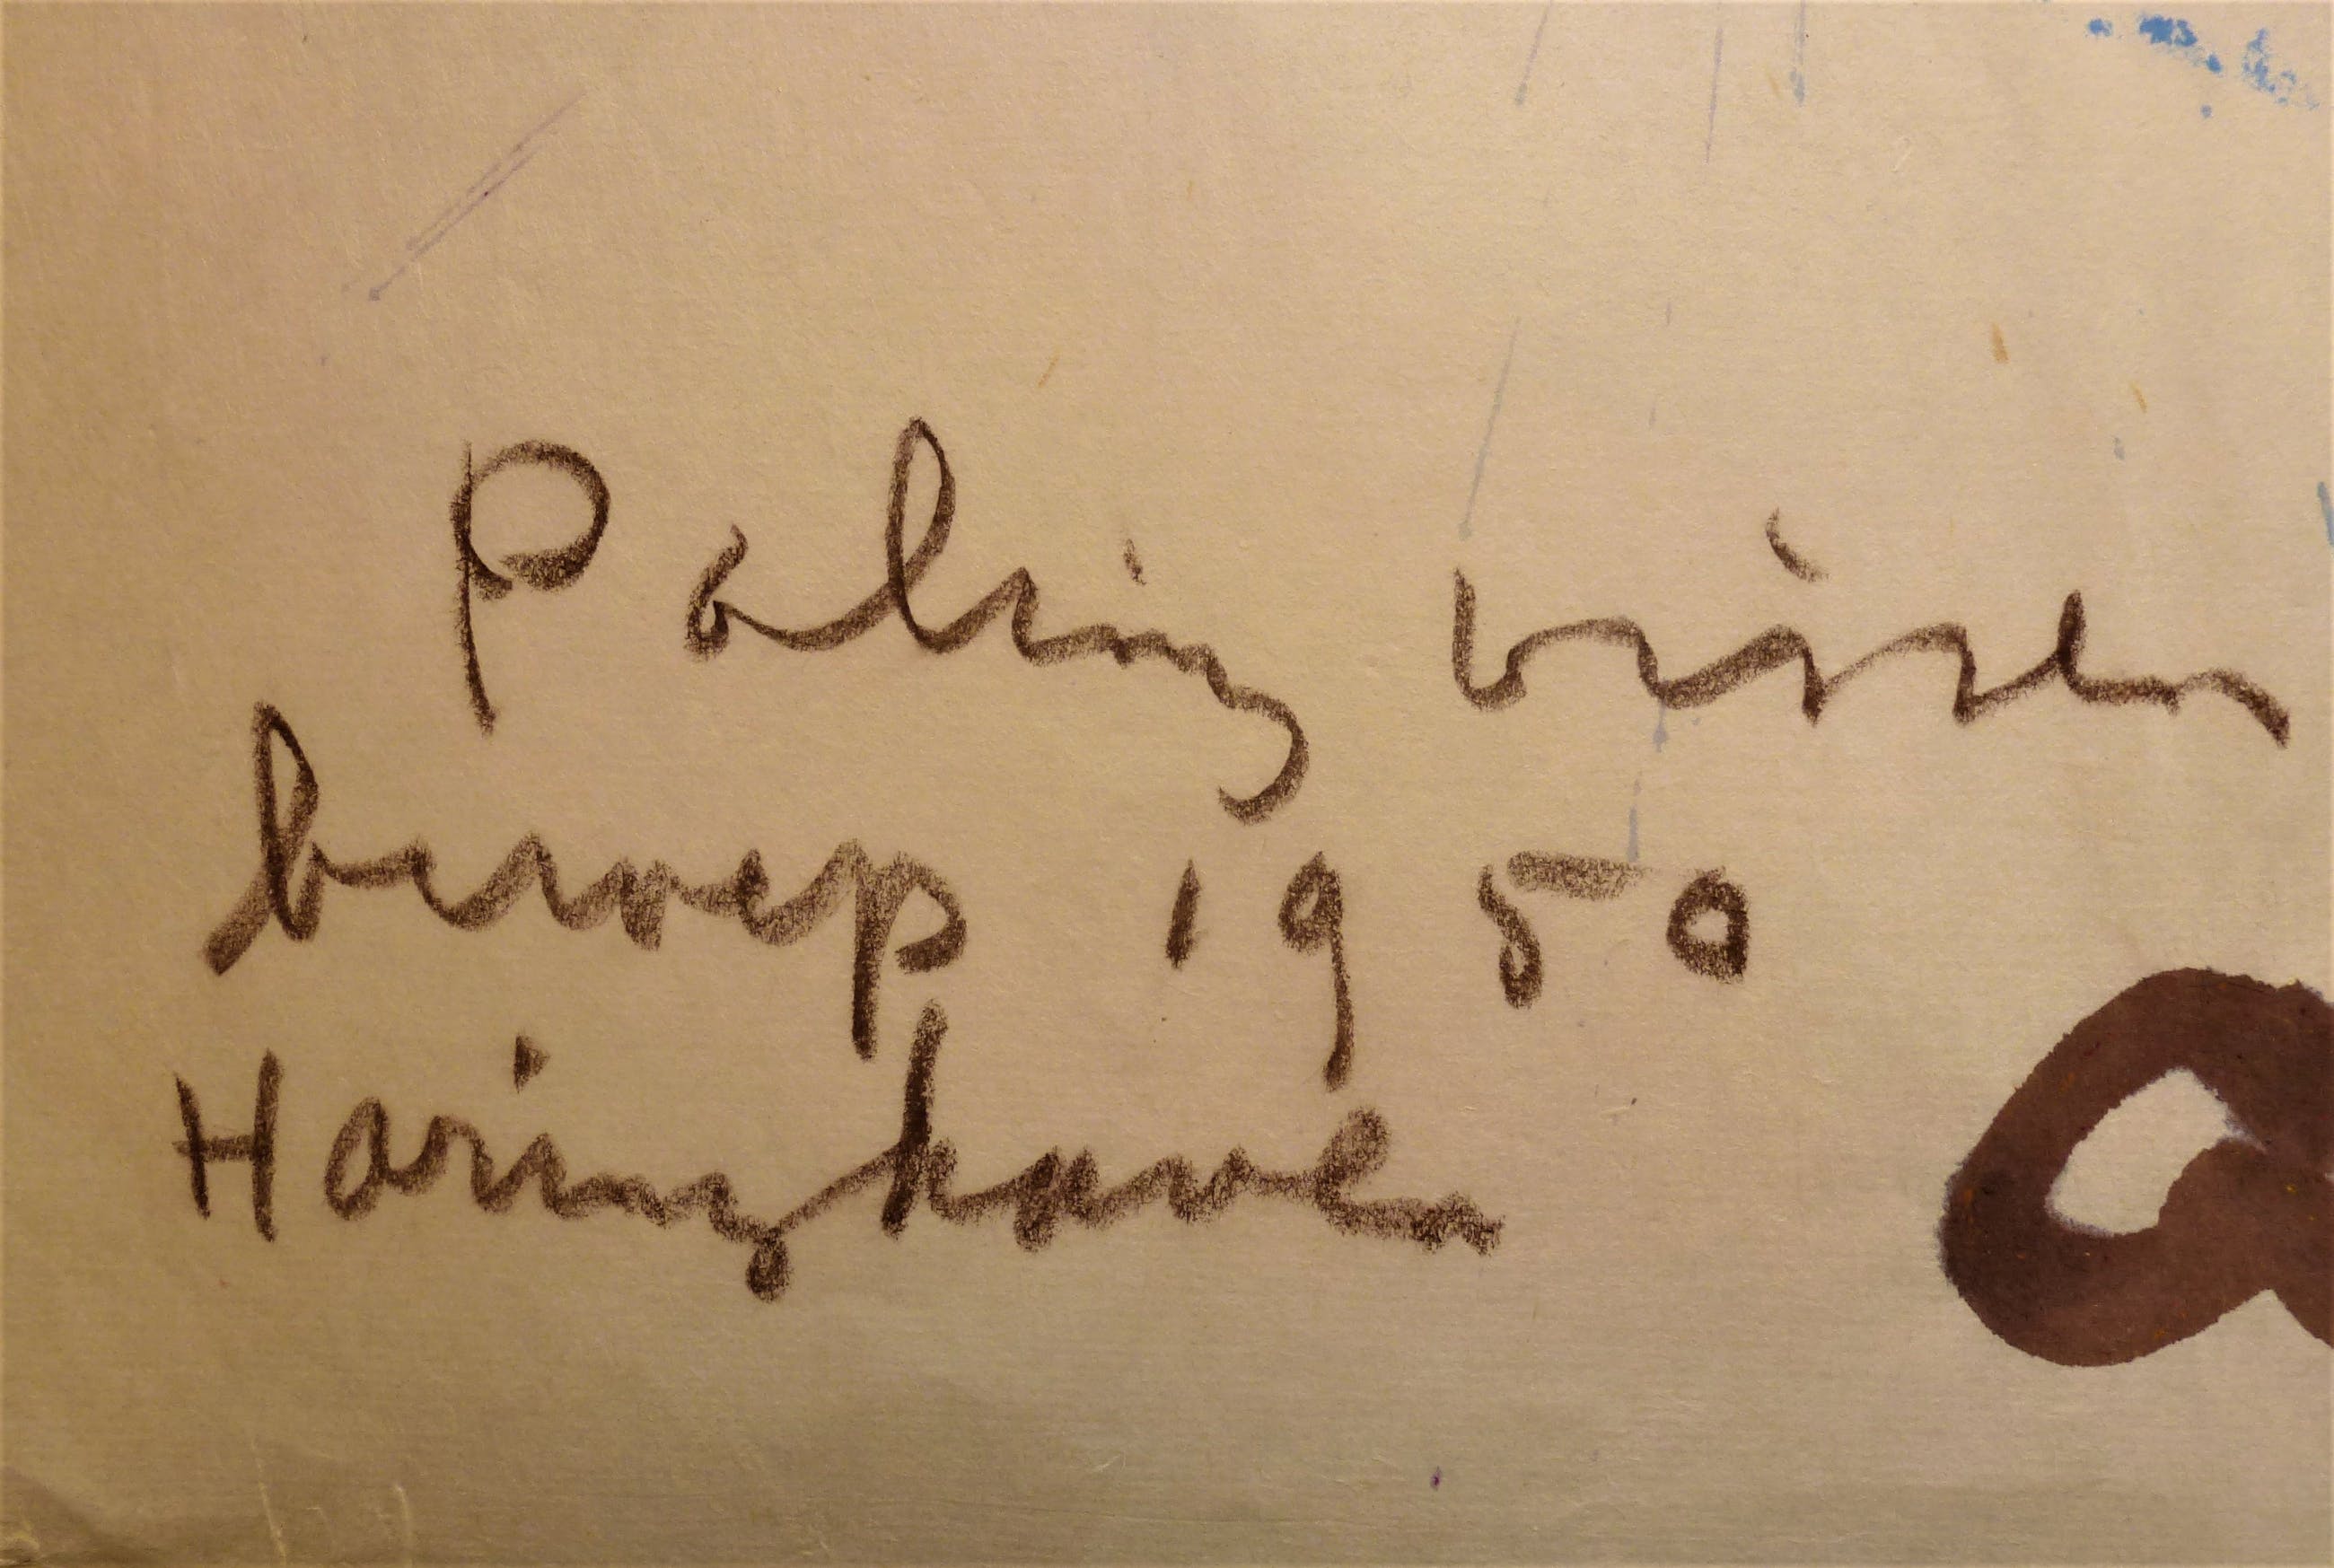 Paling vissen
beroep 1950
Haringhaven